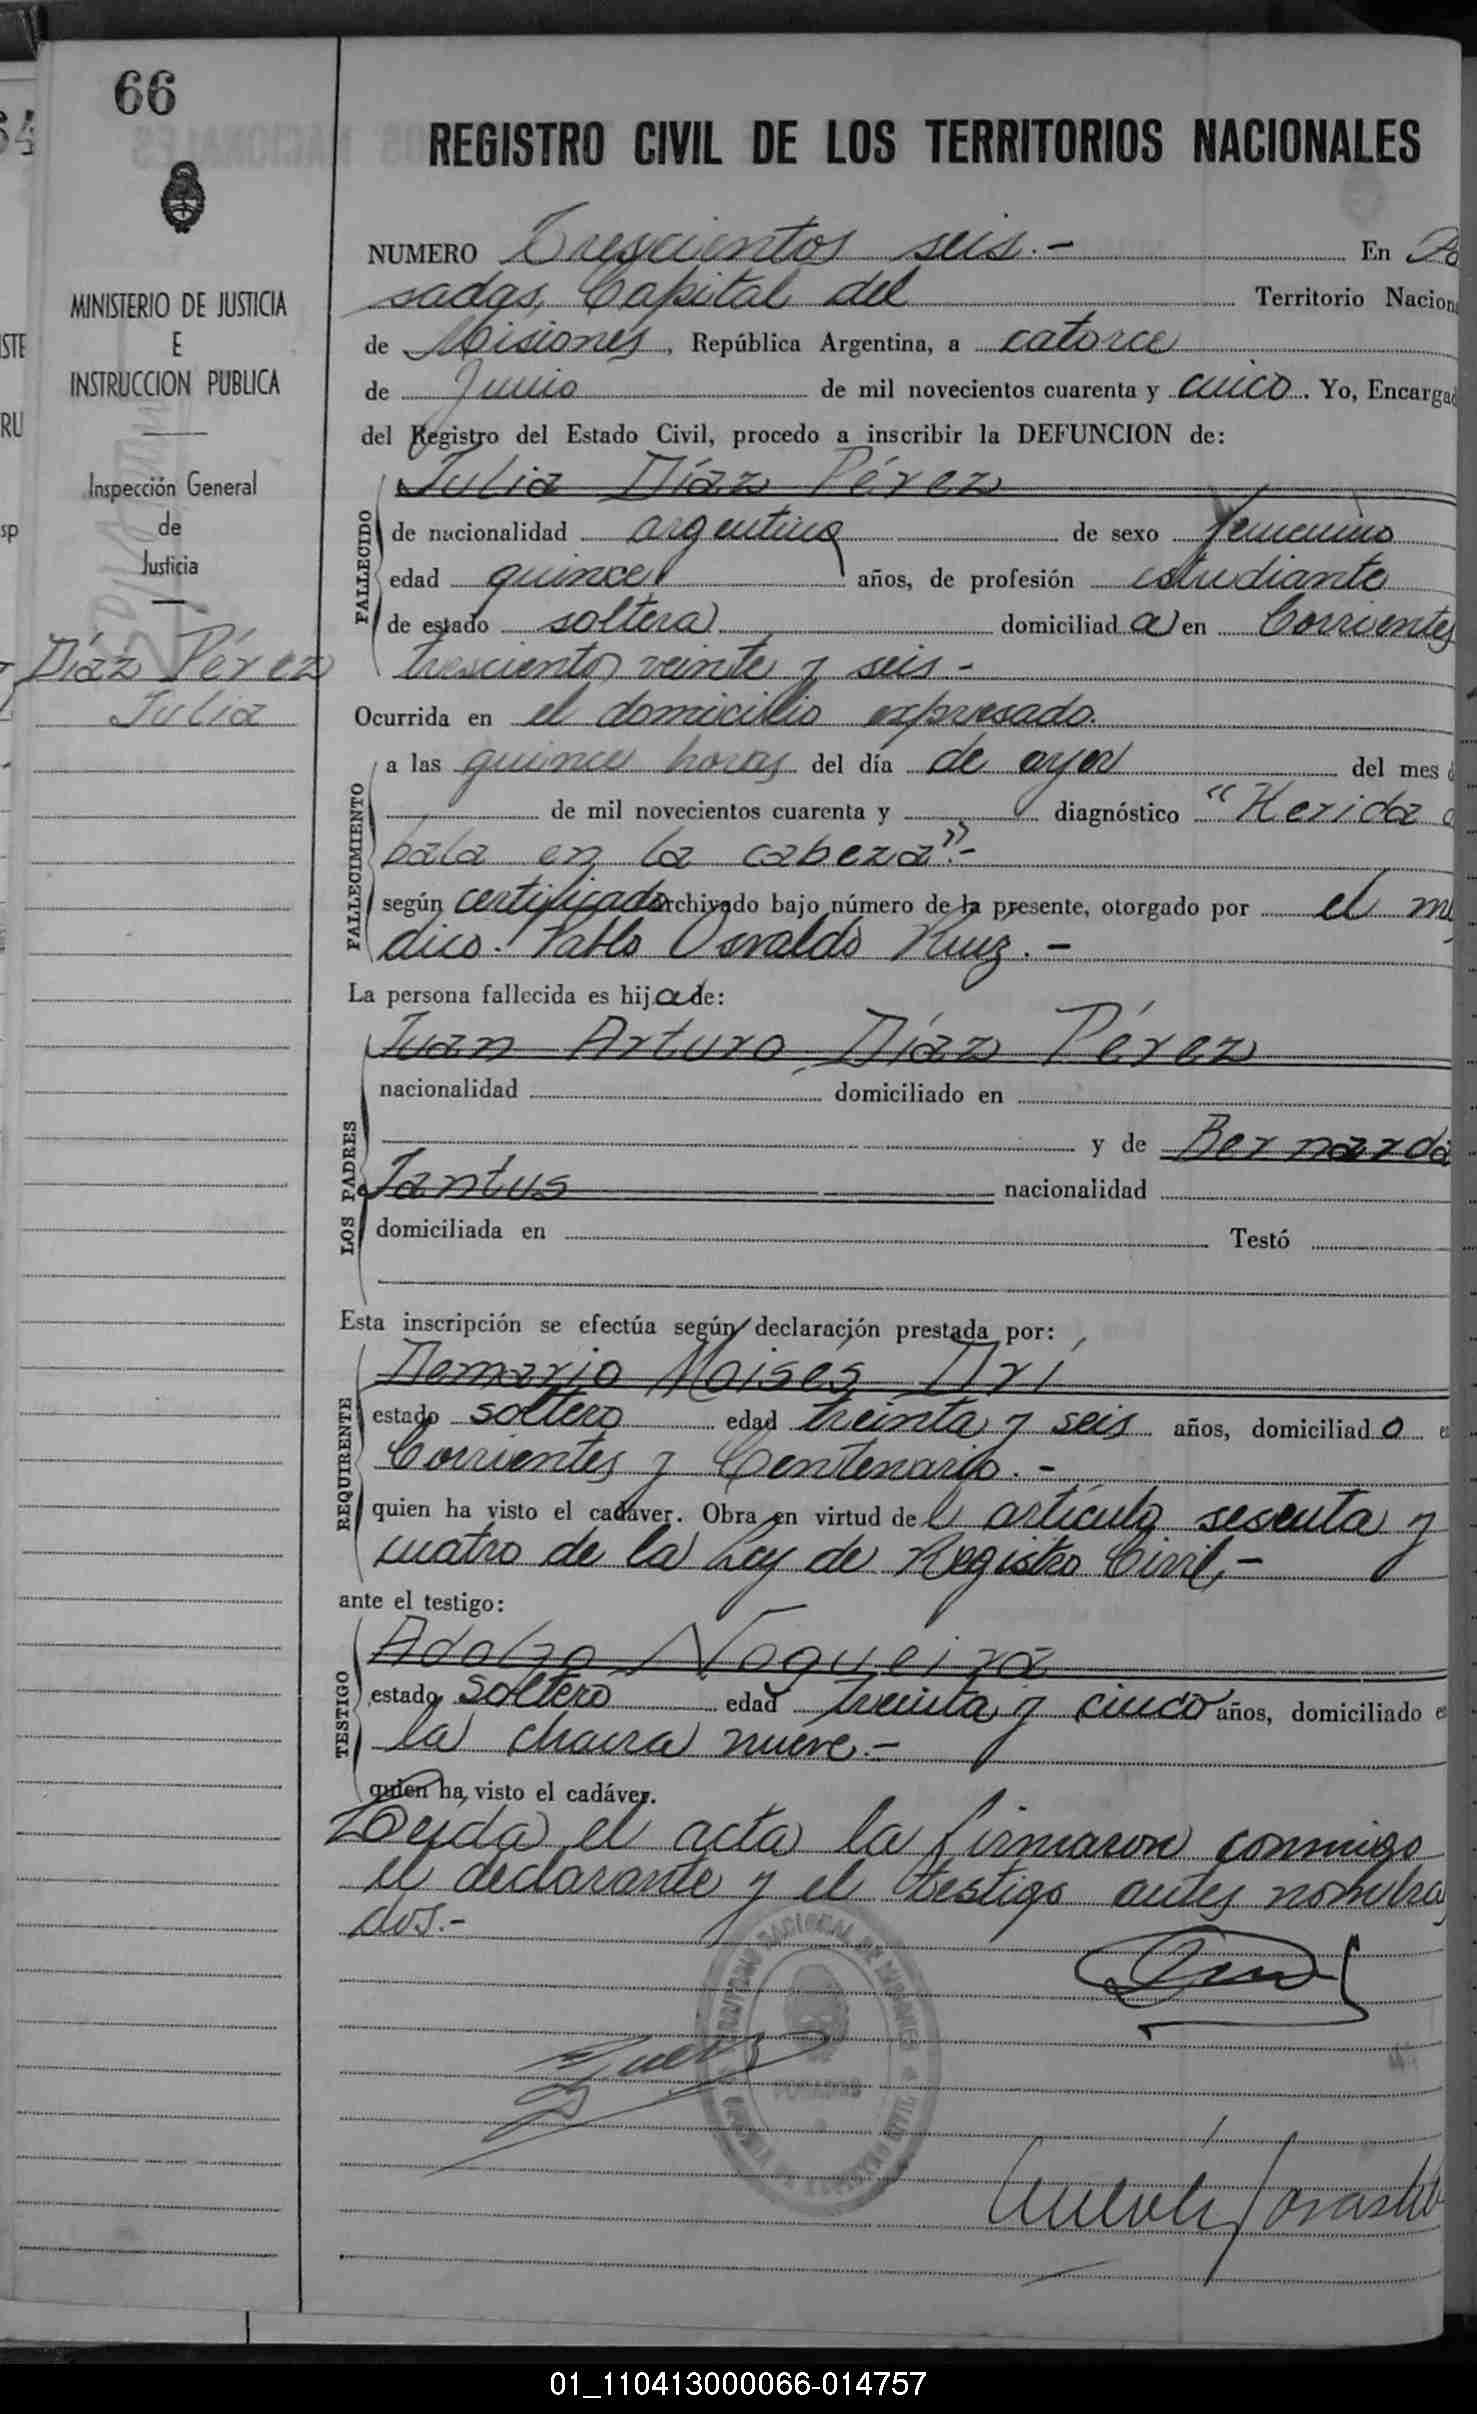 66
REGISTRO CIVIL DE LOS TERRITORIOS NACIONALES
MINISTERIO DE JUSTICIA
E
INSTRUCCION PUBLICA
Inspección General
de
Justicia
Díaz Pérez
Julia
NUMERO Trescientos seis.- En Po
sadas, Capital del Territorio Nacion
de Misiones, República Argentina, a catorce
de Junio de mil novecientos cuarenta y cinco. Yo, Encargad
del Registro del Estado Civil, procedo a inscribir la DEFUNCION de:
Julia Díaz Pérez
FALLECIDO
de nacionalidad argentina de sexo femenino
edad quince años, de profesión estudiante
de estado soltera domiciliad a en Corrientes
trescientos veinte y seis.-
Ocurrida en el domicilio expresado.
FALLECIMIENTO
a las quince horas del día de ayer del mes d
de mil novecientos cuarenta y diagnóstico "Herida d
bala en la cabeza".-
según certificado archivado bajo número de la presente, otorgado por el mé
dico. Pablo Osvaldo Ruiz.-
La persona fallecida es hija de:
LOS PADRES
Juan Arturo Díaz Pérez
nacionalidad domiciliado en
y de Bernarda
Jantus nacionalidad
domiciliada en Testó
Esta inscripción se efectúa según declaración prestada por:
REQUIRENTE
Demario Moisés
estado soltero edad treinta y seis años, domiciliad o e
Corrientes y Centenario.-
quien ha visto el cadáver. Obra en virtud del artículo sesenta y
cuatro de la Ley de Registro Civil.-
ante el testigo:
TESTIGO
Adolfo Nogueira
estado soltero edad treinta y cinco años, domiciliado e
la chacra nueve.-
quien ha visto el cadáver.
Leída el acta la firmaron conmigo
el declarante y el testigo antes nombra
dos.-
01_110413000066-014757